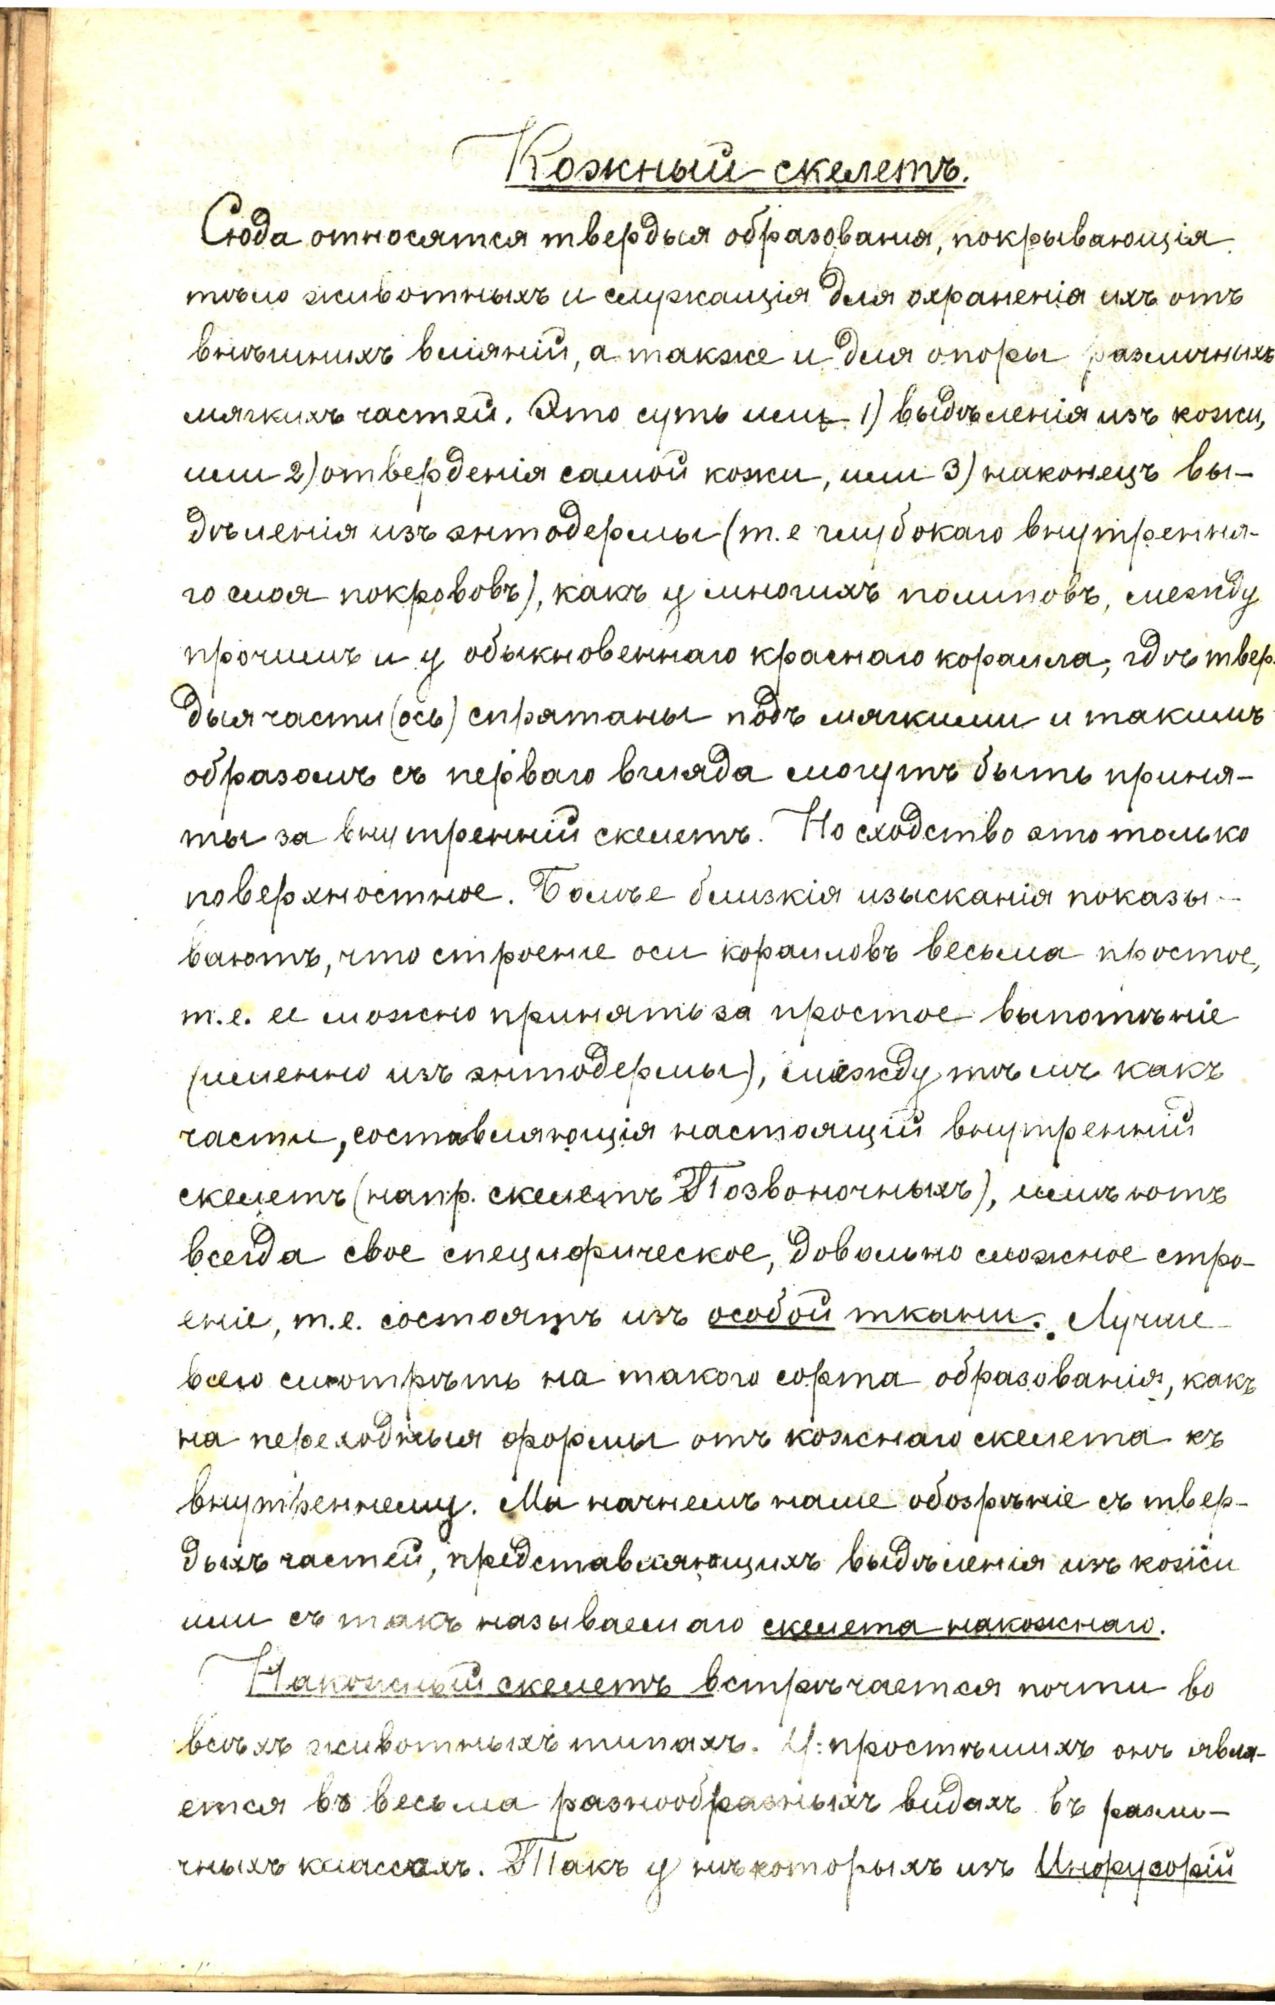 Кожный скелетъ.
Сюда относятся твердыя образования, покрывающія
тѣло животныхъ и служащія для охраненія ихъ отъ
внѣшнихъ вліяній, а также и для опоры различныхъ
мягкихъ частей. Это суть или 1) выдѣленія изъ кожи,
или 2) отвердения самой кожи, или 3) наконецъ вы-
дѣленія изъ энтодермы (т.е глубокаго внутрення-
го слоя покрововъ), какъ у многихъ полиповъ, между
прочимъ и у обыкновеннаго краснаго коралла, гдѣ твер-
дыя части (ось) спрятаны подъ мягкими и такимъ
образомъ съ перваго взгляда могутъ быть приня-
ты за внутренній скелетъ. Но сходство это только
поверхностное. Болѣе близкія изысканія показы-
ваютъ, что строение оси коралловъ весьма простое,
т.е. ее можно принять за простое выпотѣніе
(именно изъ энтодермы), между тѣмъ какъ
части, составляющія настоящій внутренній
скелетъ (напр. скелетъ Позвоночныхъ), имѣютъ
всегда свое специфическое, довольно сложное стро-
еніе, т.е. состоятъ изъ особой ткани. Лучше
всего смотрѣть на такого сорта образованія, какъ
на переходныя формы отъ кожнаго скелета къ
внутреннему. Мы начнемъ наше обозрѣніе съ твер-
дыхъ частей, представляющихъ выдѣленія изъ кожи
или съ такъ называемаго скелета накожнаго.
Накожный скелетъ встрѣчается почти во
всѣхъ животныхъ типахъ. У простѣйшихъ онъ явля-
ется въ весьма разнообразныхъ видахъ въ разли-
чныхъ классахъ. Такъ у нѣкоторыхъ изъ Инфузорій